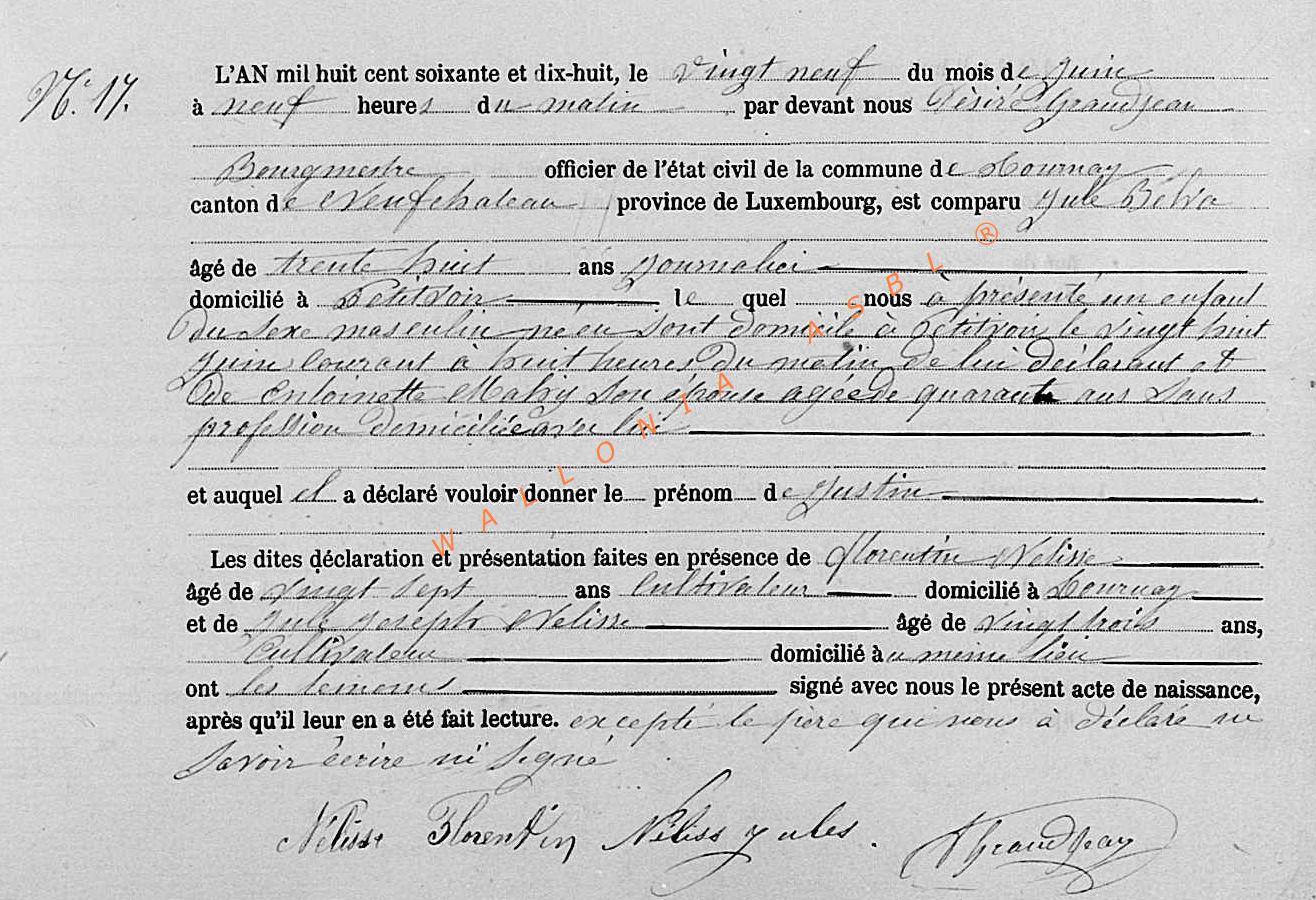 N.° 17.
L'AN mil huit cent soixante et dix-huit, le vingt neuf du mois de Juin
à neuf heures du matin par devant nous Désiré Grandjean
Bourgmestre officier de l'état civil de la commune de Tournay
canton de Neufchateau province de Luxembourg, est comparu Jule
âgé de trente huit ans Journalier
domicilié à Petitvoir le quel nous à présenté un enfant
du sexe masculin né en sont domicile à Petitvoir le vingt huit
Juin courant à huit heures du matin de lui déclarant et
de Antoinette son épouse agée de quarante ans sans
profession domiciliée avec lui
et auquel il a déclaré vouloir donner le prénom de Justin
Les dites déclaration et présentation faites en présence de Florentin Nelisse
âgé de vingt sept ans Cultivateur domicilié à Tournay
et de Jule Joseph Nelisse âgé de vingt trois ans,
Cultivateur domicilié au meme lieu
ont les temoins signé avec nous le présent acte de naissance,
après qu'il leur en a été fait lecture. excepté le père qui nous à déclaré ne
savoir écrire ni signé
Nélisse Florentin Néliss Jules. Grandjean
WALLONIA ASBL ®